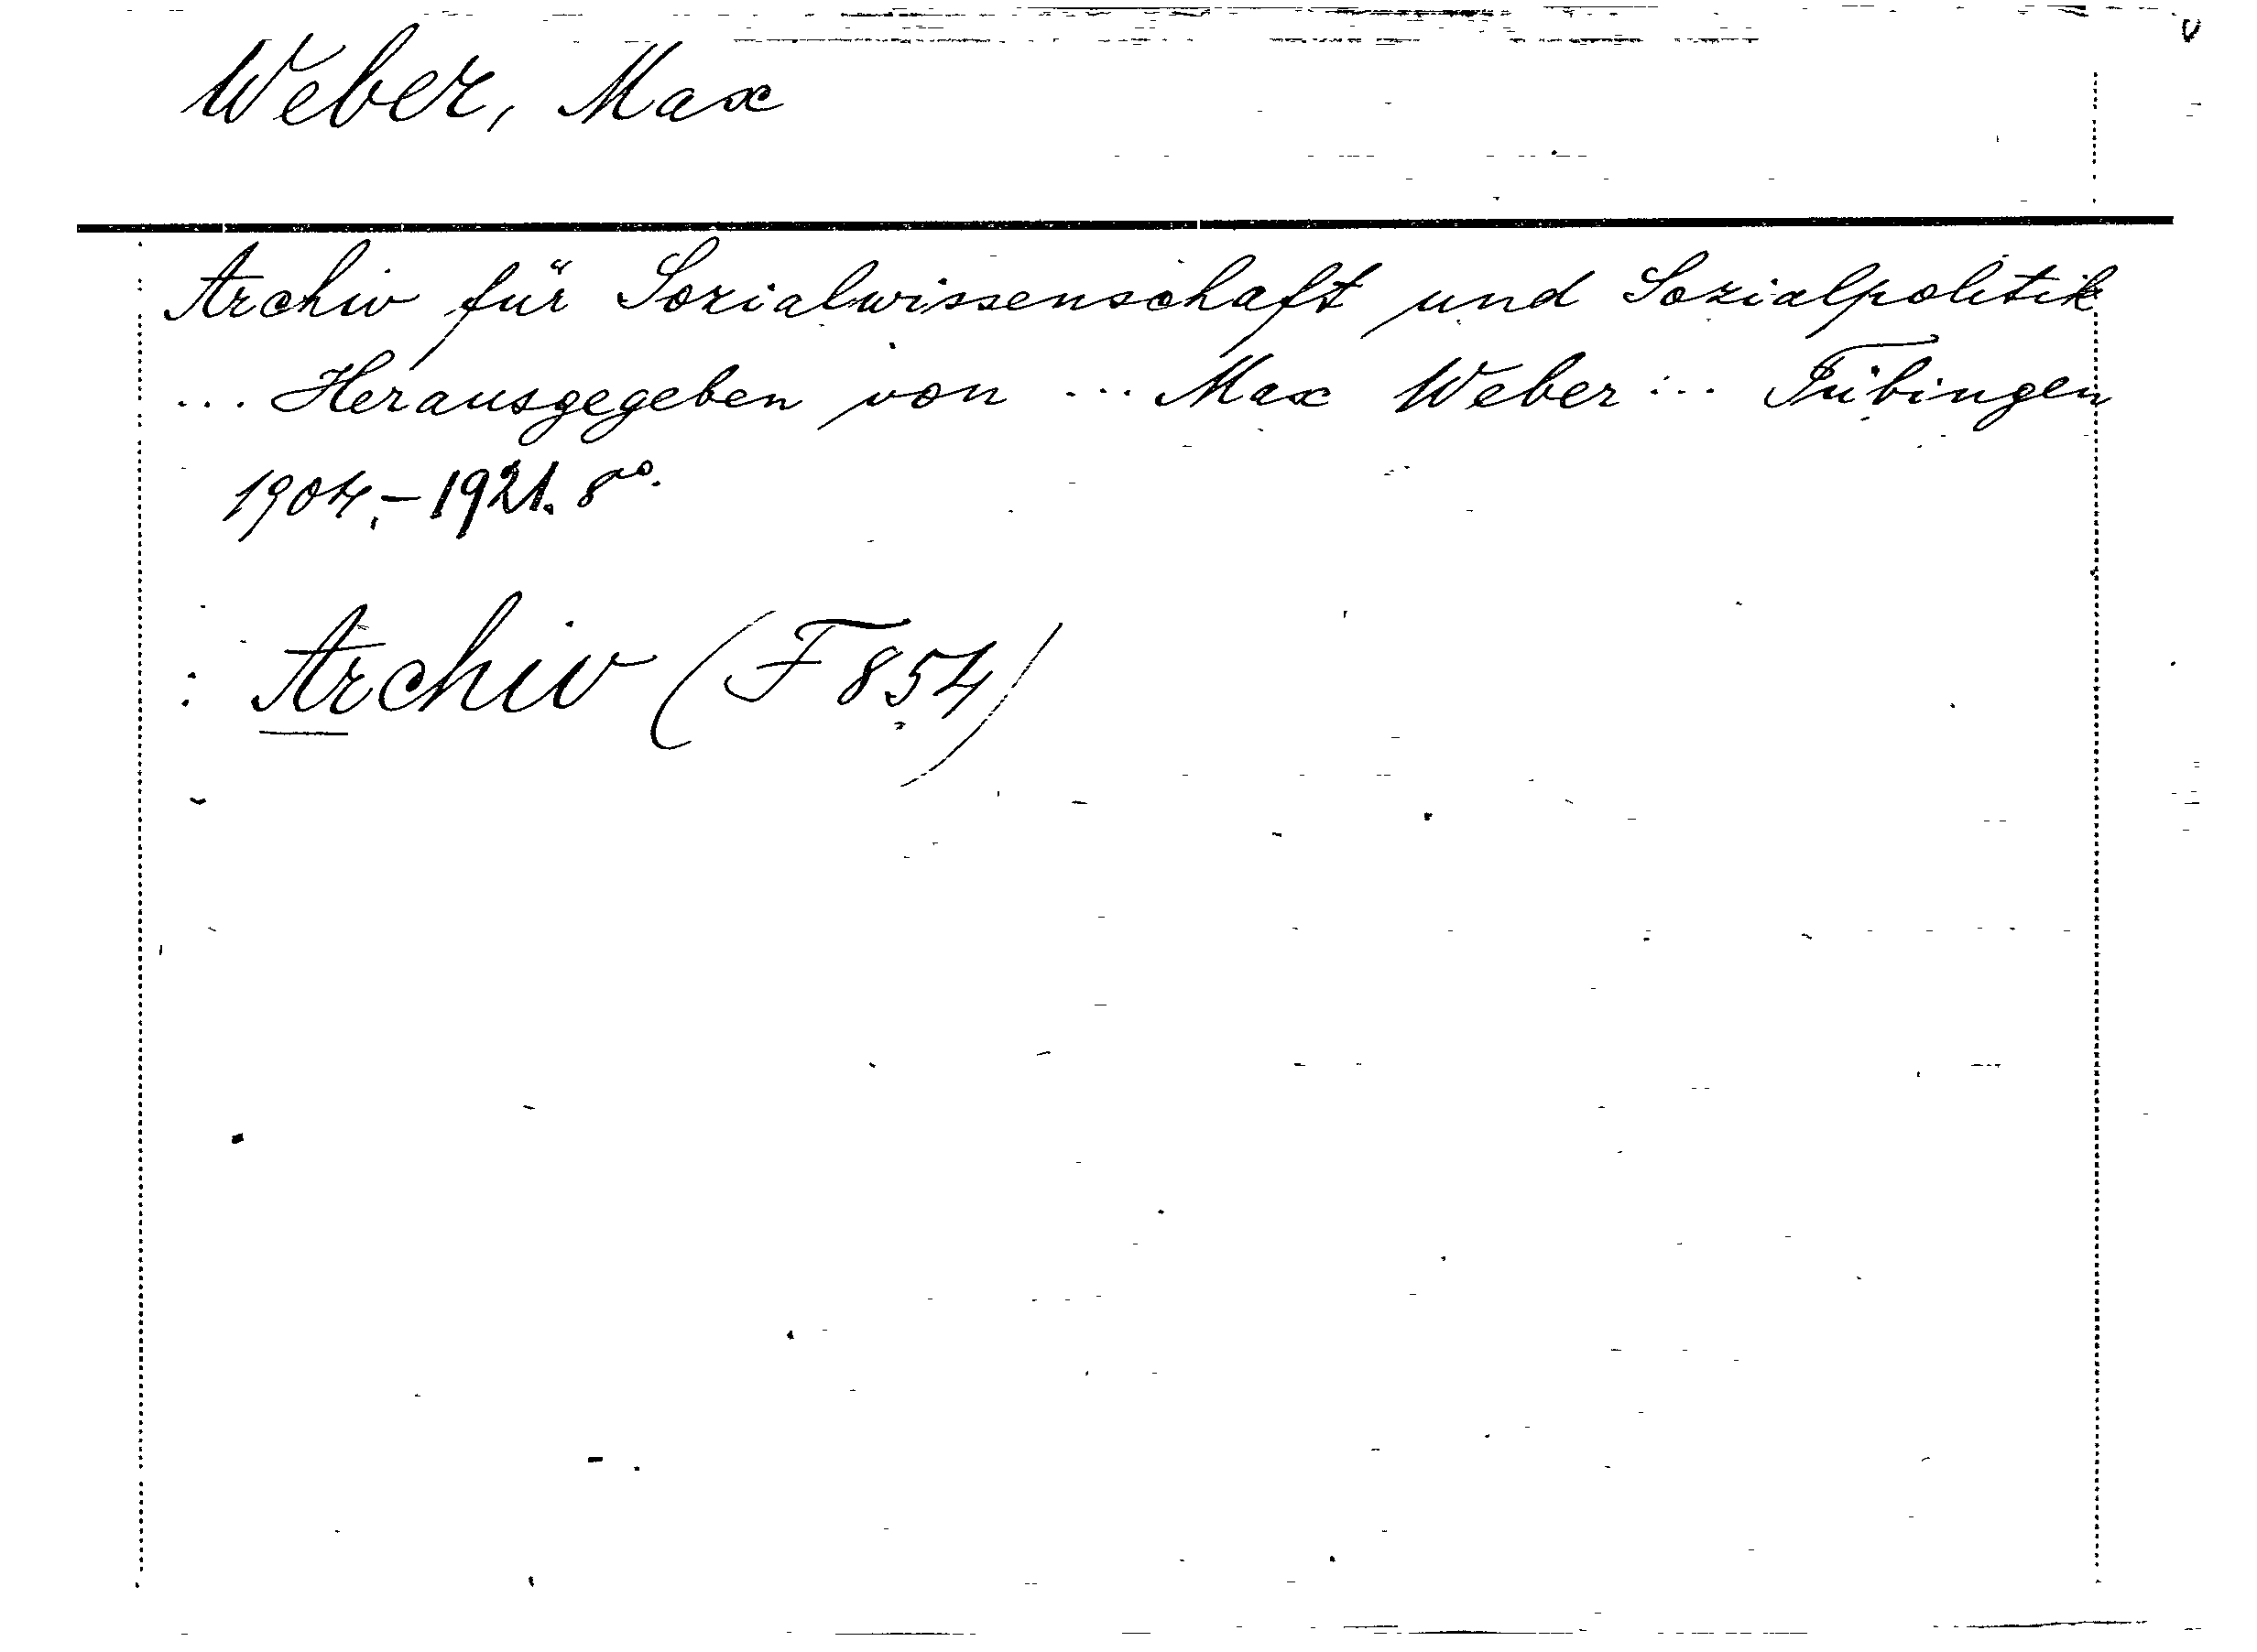 Weber, Max
Archiv für Sozialwissenschaft und Sozialpolitik
... Herausgegeben von ... Max Weber ... Tübingen
1904.-1921. 8°.
: Archiv (F 854)